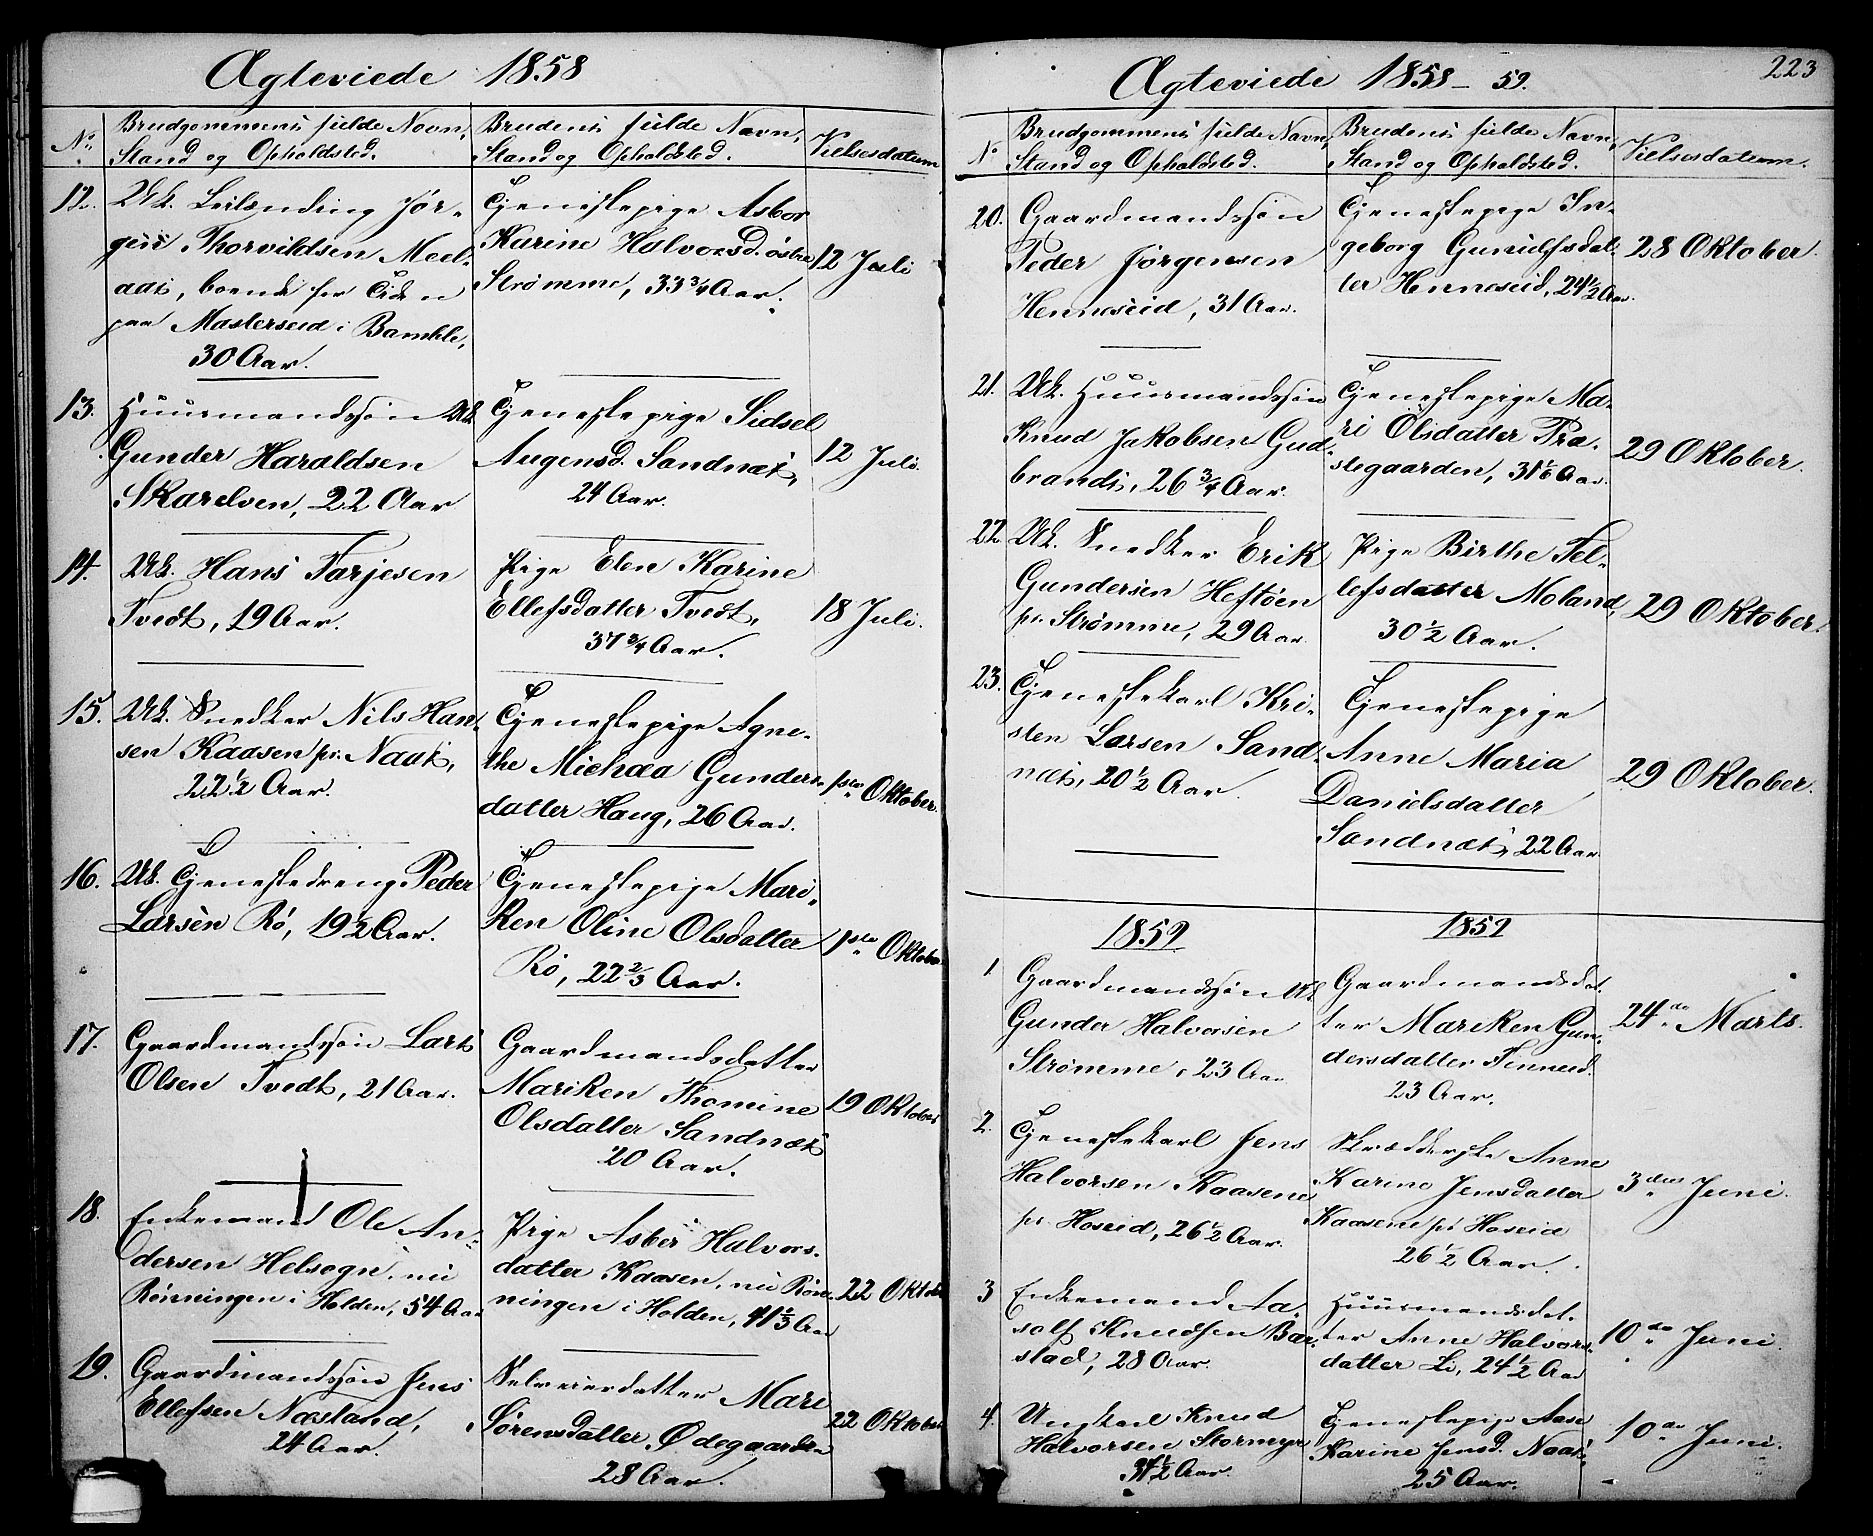 Ægteviede 1858
No
Brudgommens fulde Navn,
Stand og Opholdsted.
Brudens fulde Navn,
Stand og Opholdsted.
Vielsesdatum
12.
Uk. Leilænding Jør-
gen Thorvildsen Meel-
aas, boende for Tiden
paa Mosterseid i Bamble,
30 Aar.
Tjenestepige Asbor
Karine Halvorsd. østre
Strømme, 33 3/4 Aar.
12 Juli
13.
Huusmandssøn Uk.
Gunder Haraldsen
Skarelven, 22 Aar
Tjenestepige Sidsel
Augensd. Sandnæs,
24 Aar.
12 Juli.
14.
Uk. Hans Tarjesen
Tvedt, 19 Aar.
Pige Elen Karine
Ellefsdatter Tvedt,
37 3/4 Aar.
18 Juli.
15.
Uk. Snedker Nils Han-
sen Kaasen pr. Naas,
22 1/2 Aar.
Tjenestepige Agne-
the Michaa Gunders-
datter Haug, 26 Aar.
1ste Oktober.
16.
Uk. Tjenestedreng Peder
Larsen Rø, 19 1/2 Aar.
Tjenestepige Mari-
ken Oline Olsdatter
Rø, 22 2/3 Aar.
1ste Oktober
17.
Gaardmandssøn Lars
Olsen Tvedt, 21 Aar.
Gaardmandsdatter
Mariken Thomine
Olsdatter Sandnæs
20 Aar.
19 Oktober
18.
Enkemand Ole An-
dersen Helsogn, nu
Rønningen i Holden, 54 Aar
Pige Asber Halvors-
datter Kaasen, nu Røn-
ningen i Holden, 41 2/3 Aar
22 Oktober
19.
Gaardmandssøn Jens
Ellefsen Næsland,
24 Aar.
Selveierdatter Mari
Sørensdatter Ødegaarden
28 Aar.
22 Oktober
Ægteviede 1858-59.
223
No
Brudgommens fulde Navn,
Stand og Opholdsted.
Brudens fulde Navn,
Stand og Opholdsted.
Vielsesdatum.
20.
Gaardmandssøn
Peder Jørgensen
Henneseid, 31 Aar.
Tjenestepige In-
geborg Gunulfsdat-
ter Henneseid, 24 1/2 Aar.
28 Oktober.
21.
Uk. Huusmandssøn
Knud Jakobsen Gud-
brands, 26 3/4 Aar.
Tjenestepige Ma-
ri Olsdatter Præ-
stegaarden, 31 1/6 Aar.
29 Oktober.
22
Uk. Snedker Erik
Gundersen Heftøen
pr. Strømme, 29 Aar
Pige Birthe Tel-
lefsdatter Moland,
30 1/2 Aar.
29 Oktober.
23.
Tjenestekarl Kri-
sten Larsen Sand-
næs, 20 1/2 Aar.
Tjenestepige
Anne Maria
Danielsdatter
Sandnæs, 22 Aar
29 Oktober.
1859
1859
1
Gaardmandssøn Uk.
Gunder Halvorsen
Strømme, 23 Aar
Gaardmandsdat-
ter Mariken Gun-
dersdatter Finneid.
23 Aar.
24de Marts.
2.
Tjenestekarl Jens
Halvorsen Kaasene
pr. Hoseid, 26 1/2 Aar.
Skrædderske Anne
Karine Jensdatter
Kaasene pr. Hoseid
26 1/2 Aar.
3die Juni.
3
Enkemand Aa-
solf Knudsen Bær-
stad, 28 Aar.
Huusmandsdat-
ter Anne Halvors-
datter Li, 24 1/2 Aar
10de Juni.
4.
Ungkarl Knud
Halvorsen Stormyr
31 1/2 Aar.
Tjenestepige Aase
Karine Jensd. Naas
25 Aar.
10de Juni.